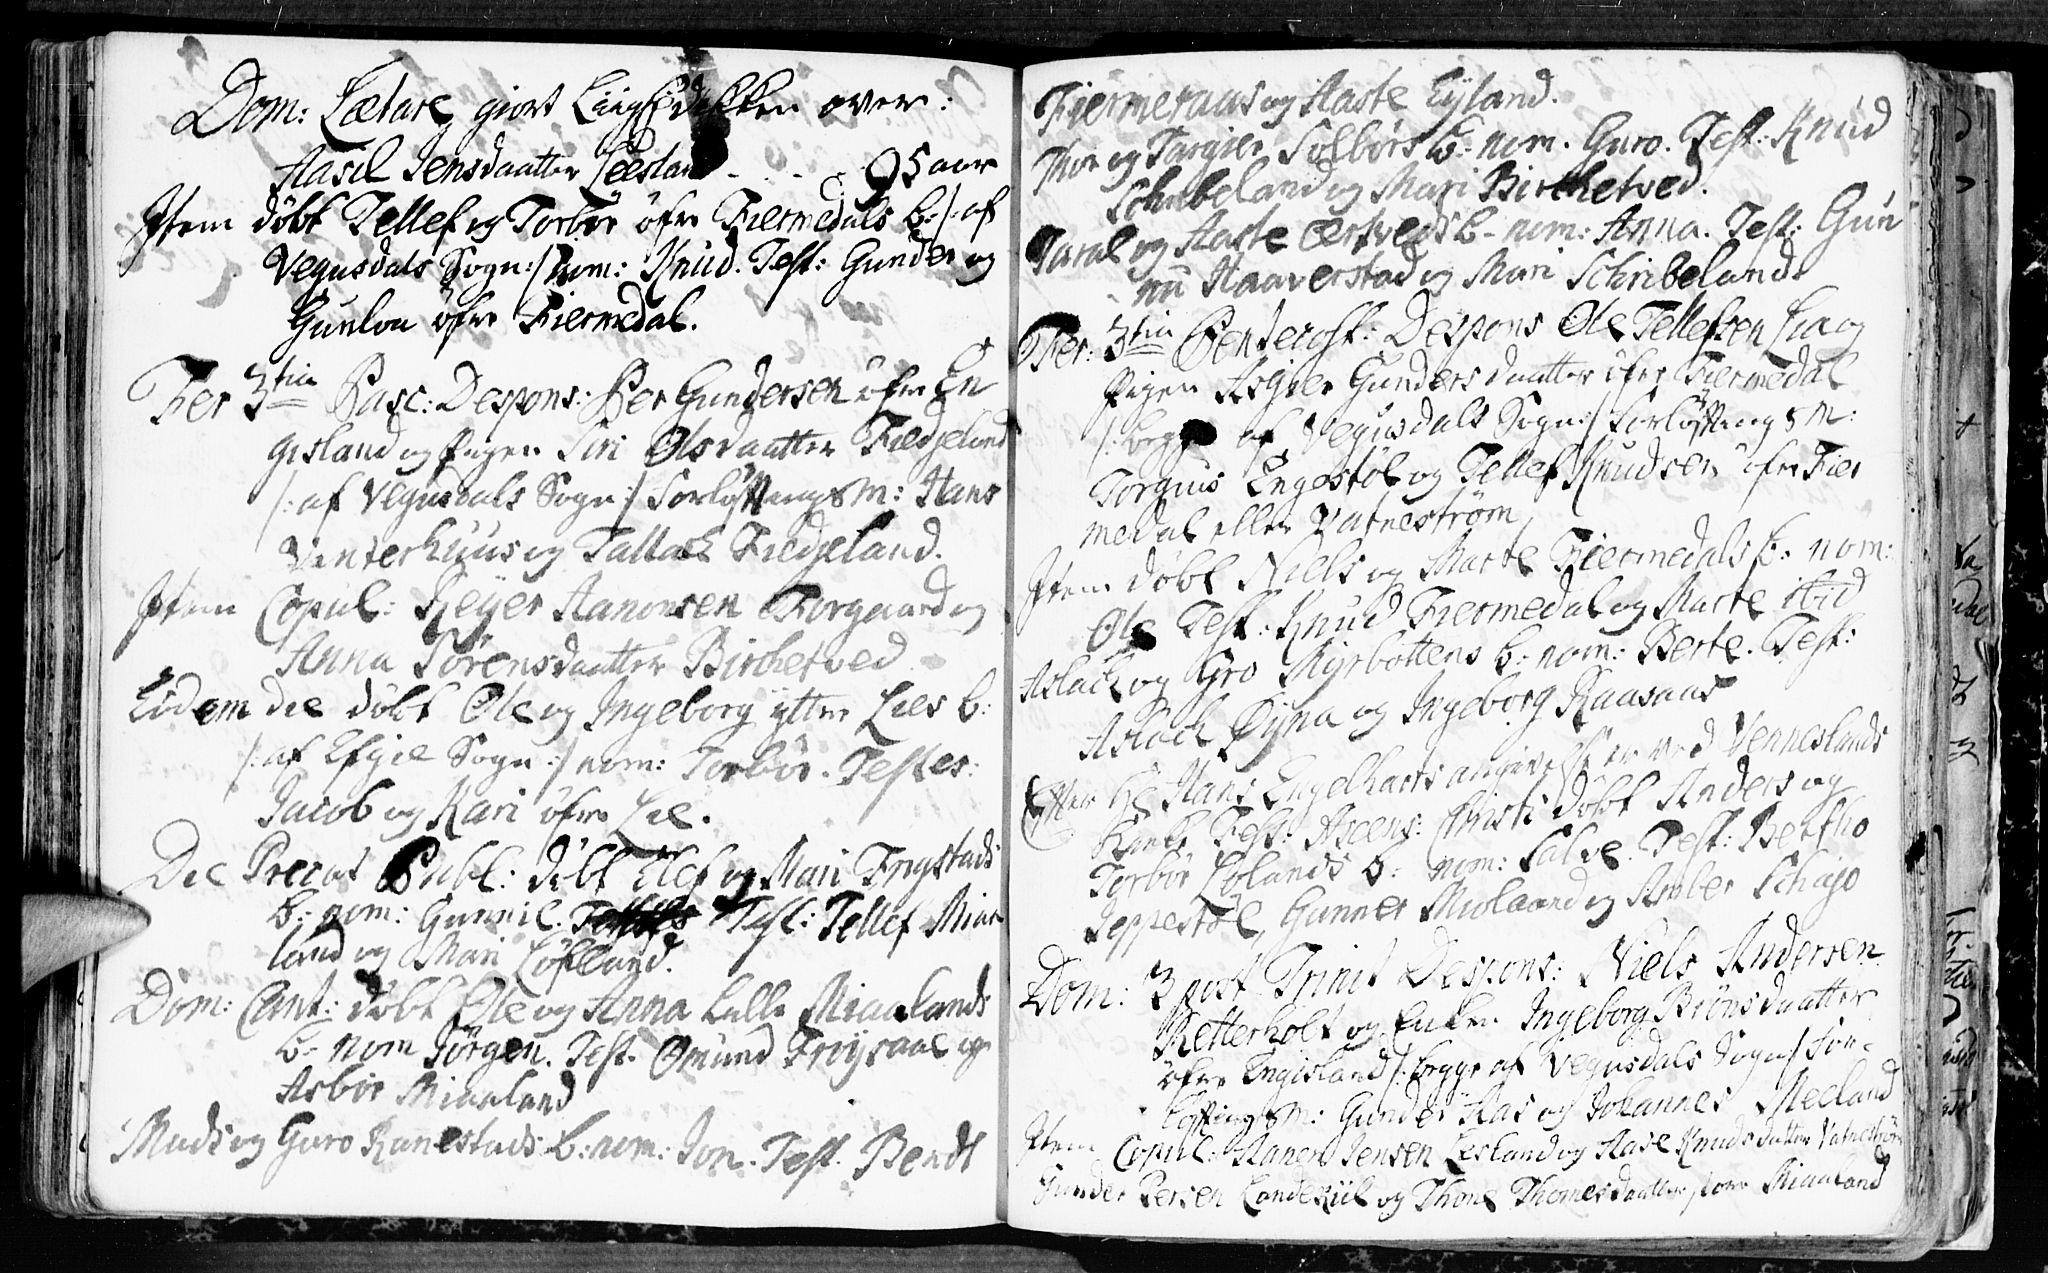 Dom: Lætare giort Liigprædikken over:
Aasil Jensdaatter Leeland - - - 95 aar
Item döbt Tellef og Torbör öfre Fiermedals b: /: af
Vegusdals Sogn :/ nom: Knud. Test: Gunder og
Gunlou öfre Fiermedal.
Fer 3tia Pasc: Despons: Per Gundersen öfre En
gisland og Pigen Siri Olsdaatter Fiedjeland
/: af Vegusdals Sogn :/ Forlöftengs M: Hans
Venterhuus og Tallach Fiedjeland.
Item Copul: Reijer Aanonsen Torgaard og
Anna Sörensdaatter Birchetved
Eodem die döbt Ole og Ingeborg ytter Lies b:
/: af Efjie Sogn :/ nom: Torbör. Testes:
Jacob og Kari öfre Lie.
Die Precat Publ: döbt Elef og Mari Frigstads
b: nom: Gunnil. Test: Tellef Miaa
land og Mari Löfland.
Dom: Cant: döbt Ole og Anna Lille Miaalands
b- nom Jörgen. Test. Omund Fröijsaae og
Asbör Miaaland
Mads og Guro Ranestads b: nom: Jon. Test. Bendt
Fiermeraas og Aaste Eyland.
Thor og Targier Solbörs b: nom. Guro. Test: Knud
Schribeland og Mari Birchetved.
Taral og Aaste Oertveds b- nom: Anna. Test: Gun
nu Haaverstad og Mari Schribeland
Fer: 3tia Pentecost: Despons Ole Tellefsen Lia og
Pigen Asgier Gundersdaatter öfre Fiermedal
/: begge af Vegusdals Sogn :/ Forlöftengs M:
Torgius Engestöl og Tellef Knudsen öfre Fier
medal eller Vatneström
Item döbt Niels og Marte Fiermedals b- nom:
Ole Test: Knud Fiermedal og Marte ibid
Aslach og Gro Myrbottens b: nom: Berte. Test:
Aslach Öyna og Ingeborg Kaasaas
Efter Hr Hans Engelharts angivelse er ved Venneslands
Kirke Fest: Ascens: Christi döbt Anders og
Torbör Lolands b- nom: Salve. Test: Bertho
Jeppestöl, Gunner Miolaand og Amber Schajo
Dom: 3 post Trinit Despons: Niels Andersen
Retterholt og Enken Ingeborg Brönsdaatter
öfre Engisland /: begge af Vegusdals Sogn :/ For-
löftings M: Gunder Aas og Johannes Meeland
Item Copul: Aanen Jensen Lesland og Aase Knudsdatter Vatneström
Gunder Persen Landekiil og Thone Thomesdaatter store Miaaland